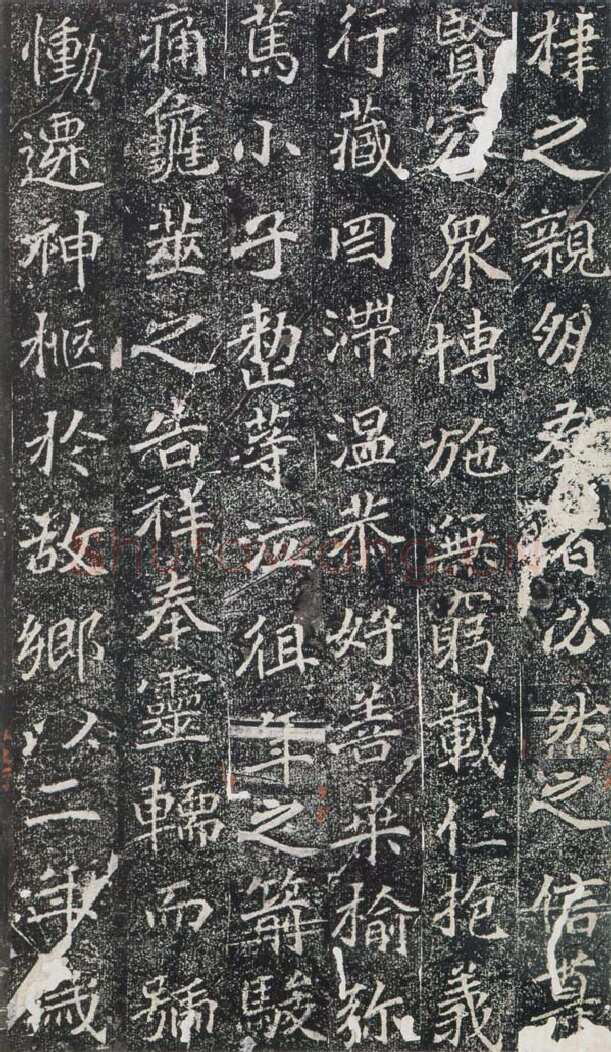 棣之親朋者必然之信尊
賢容衆博施無窮載仁抱義
行藏罔滯温恭好善桑榆弥
篤小子整等泣徂年之箭駿
痛龜筮之告祥奉靈轜而號
慟遷神柩於故鄉以二年歲